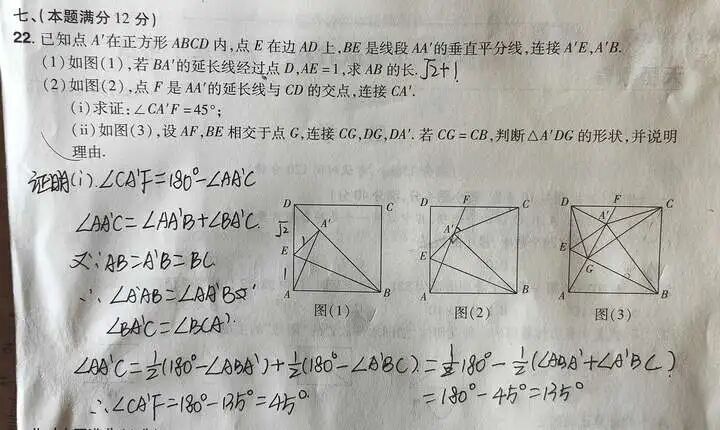 七、(本题满分12分)
22. 已知点A′在正方形ABCD内,点E在边AD上,BE是线段AA′的垂直平分线,连接A′E,A′B.
(1)如图(1),若BA′的延长线经过点D,AE=1,求AB的长.√2+1
(2)如图(2),点F是AA′的延长线与CD的交点,连接CA′.
(i)求证:∠CA′F=45°;
(ii)如图(3),设AF,BE相交于点G,连接CG,DG,DA′.若CG=CB,判断△A′DG的形状,并说明
理由.
证明(i).∠CA′F=180°-∠AA′C
∠AA′C=∠AA′B+∠BA′C.
又∵AB=A′B=BC.
∴∠A′AB=∠AA′B
∠BA′C=∠BCA′.
∠AA′C=½(180°-∠ABA′)+½(180°-∠A′BC)=180°-½(∠ABA′+∠A′BC)
∴∠CA′F=180°-135°=45°.
=180°-45°=135°
D C
√2 A′
E 1
1
A B
图(1)
D F C
A′
E
A B
图(2)
D F C
A′
E
G
A B
图(3)